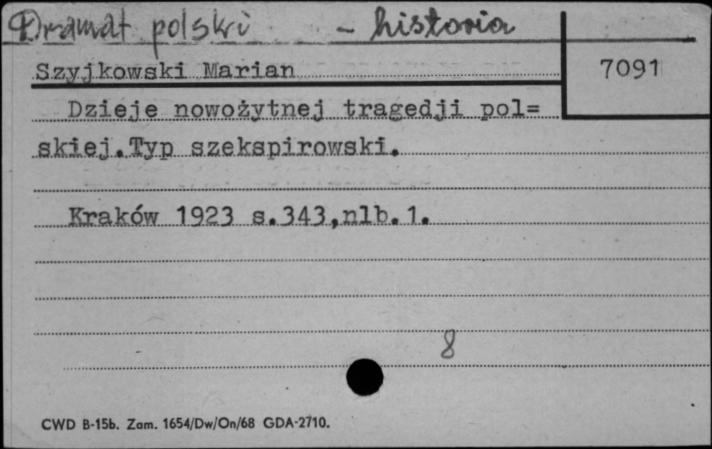 Dramat polski - historia
Szyjkowski Marian
7091
Dzieje nowożytnej tragedji pol=
skiej.Typ szekspirowski.
Kraków 1923 s.343,nlb.1.
8
CWD B-15b. Zam. 1654/Dw/On/68 GDA-2710.